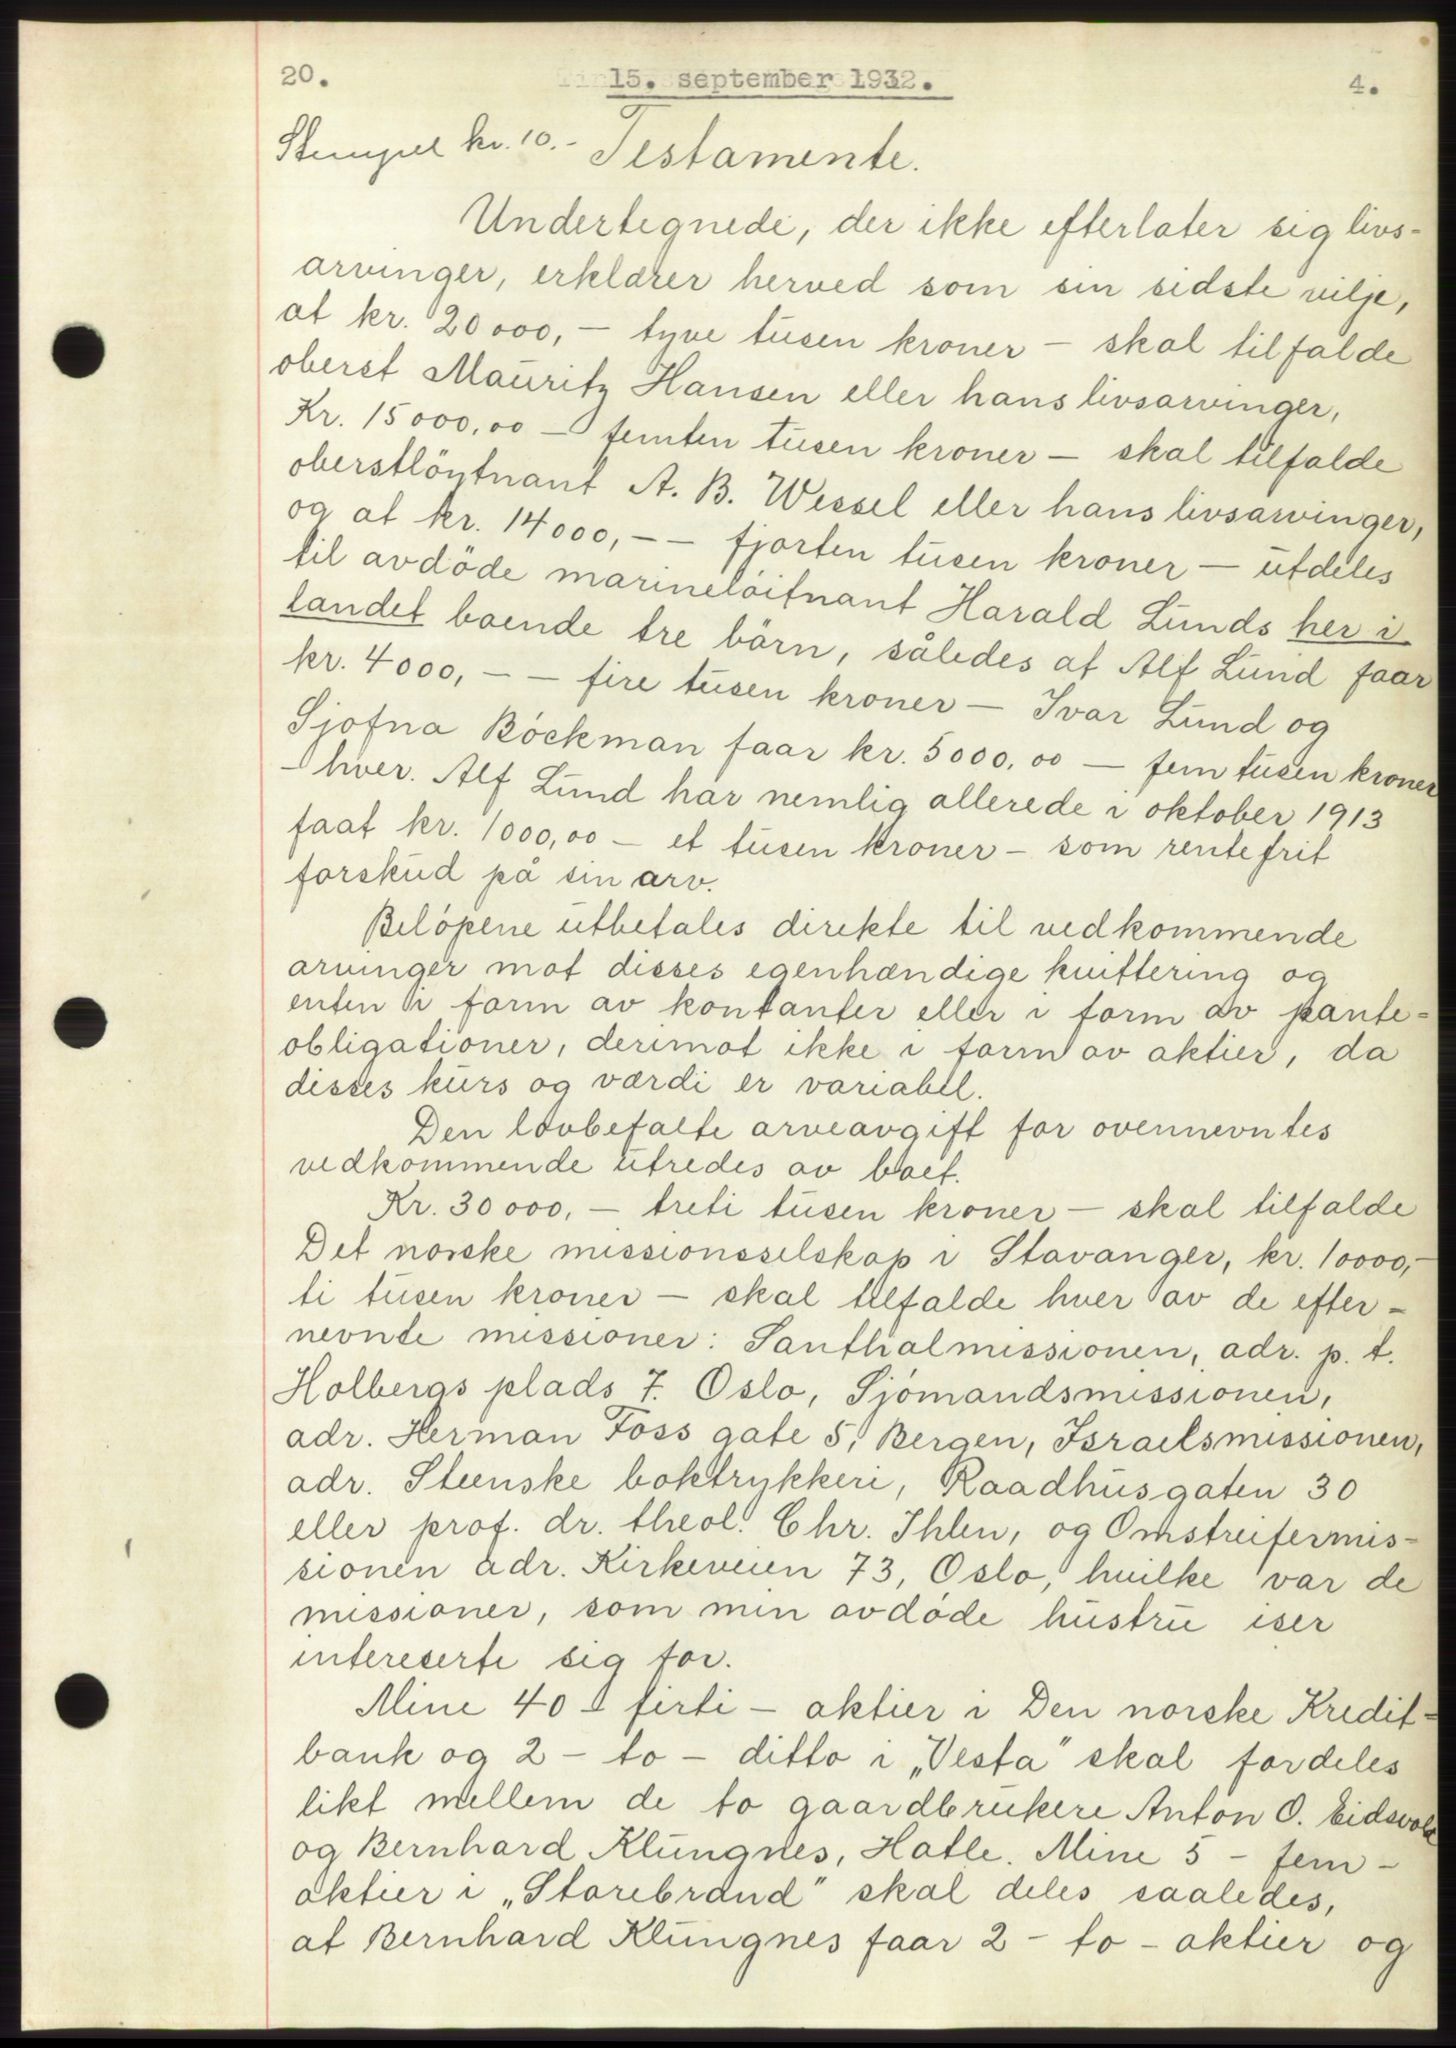 20. 15. september 1932. 4.
Stempel kr. 10.- Testamente.
Undertegnede, der ikke efterlater sig livs-
arvinger, erklærer herved som sin sidste vilje,
at kr. 20000,- tyve tusen kroner - skal tilfalde
oberst Mauritz Hansen eller hans livsarvinger,
Kr. 15000,00 - femten tusen kroner - skal tilfalde
oberstlöytnant A. B. Wessel eller hans livsarvinger,
og at kr. 14000,-- fjorten tusen kroner - utdeles
til avdöde marineløitnant Harald Lunds her i
landet boende tre börn, således at Alf Lund faar
kr. 4000,-- fire tusen kroner - Ivar Lund og
Sjofna Böckman faar kr. 5000,00 - fem tusen kroner
- hver. Alf Lund har nemlig allerede i oktober 1913
faat kr. 1000,00 - et tusen kroner - som rentefrit
forskud på sin arv.
Belöpene utbetales direkte til vedkommende
arvinger mot disses egenhændige kvittering og
enten i form av kontanter eller i form av pante=
obligationer, derimot ikke i form av aktier, da
disses kurs og værdi er variabel.
Den lovbefalte arveavgift for ovennevntes
vedkommende utredes av boet.
Kr. 30000,- treti tusen kroner - skal tilfalde
Det norske missionsselskap i Stavanger, kr. 10000,-
ti tusen kroner - skal tilfalde hver av de efter-
nevnte missioner: Santhalmissionen, adr. p. t.
Holbergs plads 7. Oslo, Sjömandsmissionen,
adr. Herman Foss gate 5, Bergen, Israelsmissionen,
adr. Steenske boktrykkeri, Raadhusgaten 30
eller prof. dr. theol. Chr. Ihlen, og Omstreifermis-
sionen adr. Kirkeveien 73, Oslo, hvilke var de
missioner, som min avdöde hustru især
interesserte sig for.
Mine 40 - firti - aktier i Den norske Kredit=
bank og 2 - to - ditto i „Vesta" skal fordeles
likt mellem de to gaardbrukere Anton O. Eidsvold
og Bernhard Klungnes, Hatle. Mine 5 - fem -
aktier i „Storebrand" skal deles saaledes,
at Bernhard Klungnes faar 2 - to - aktier og